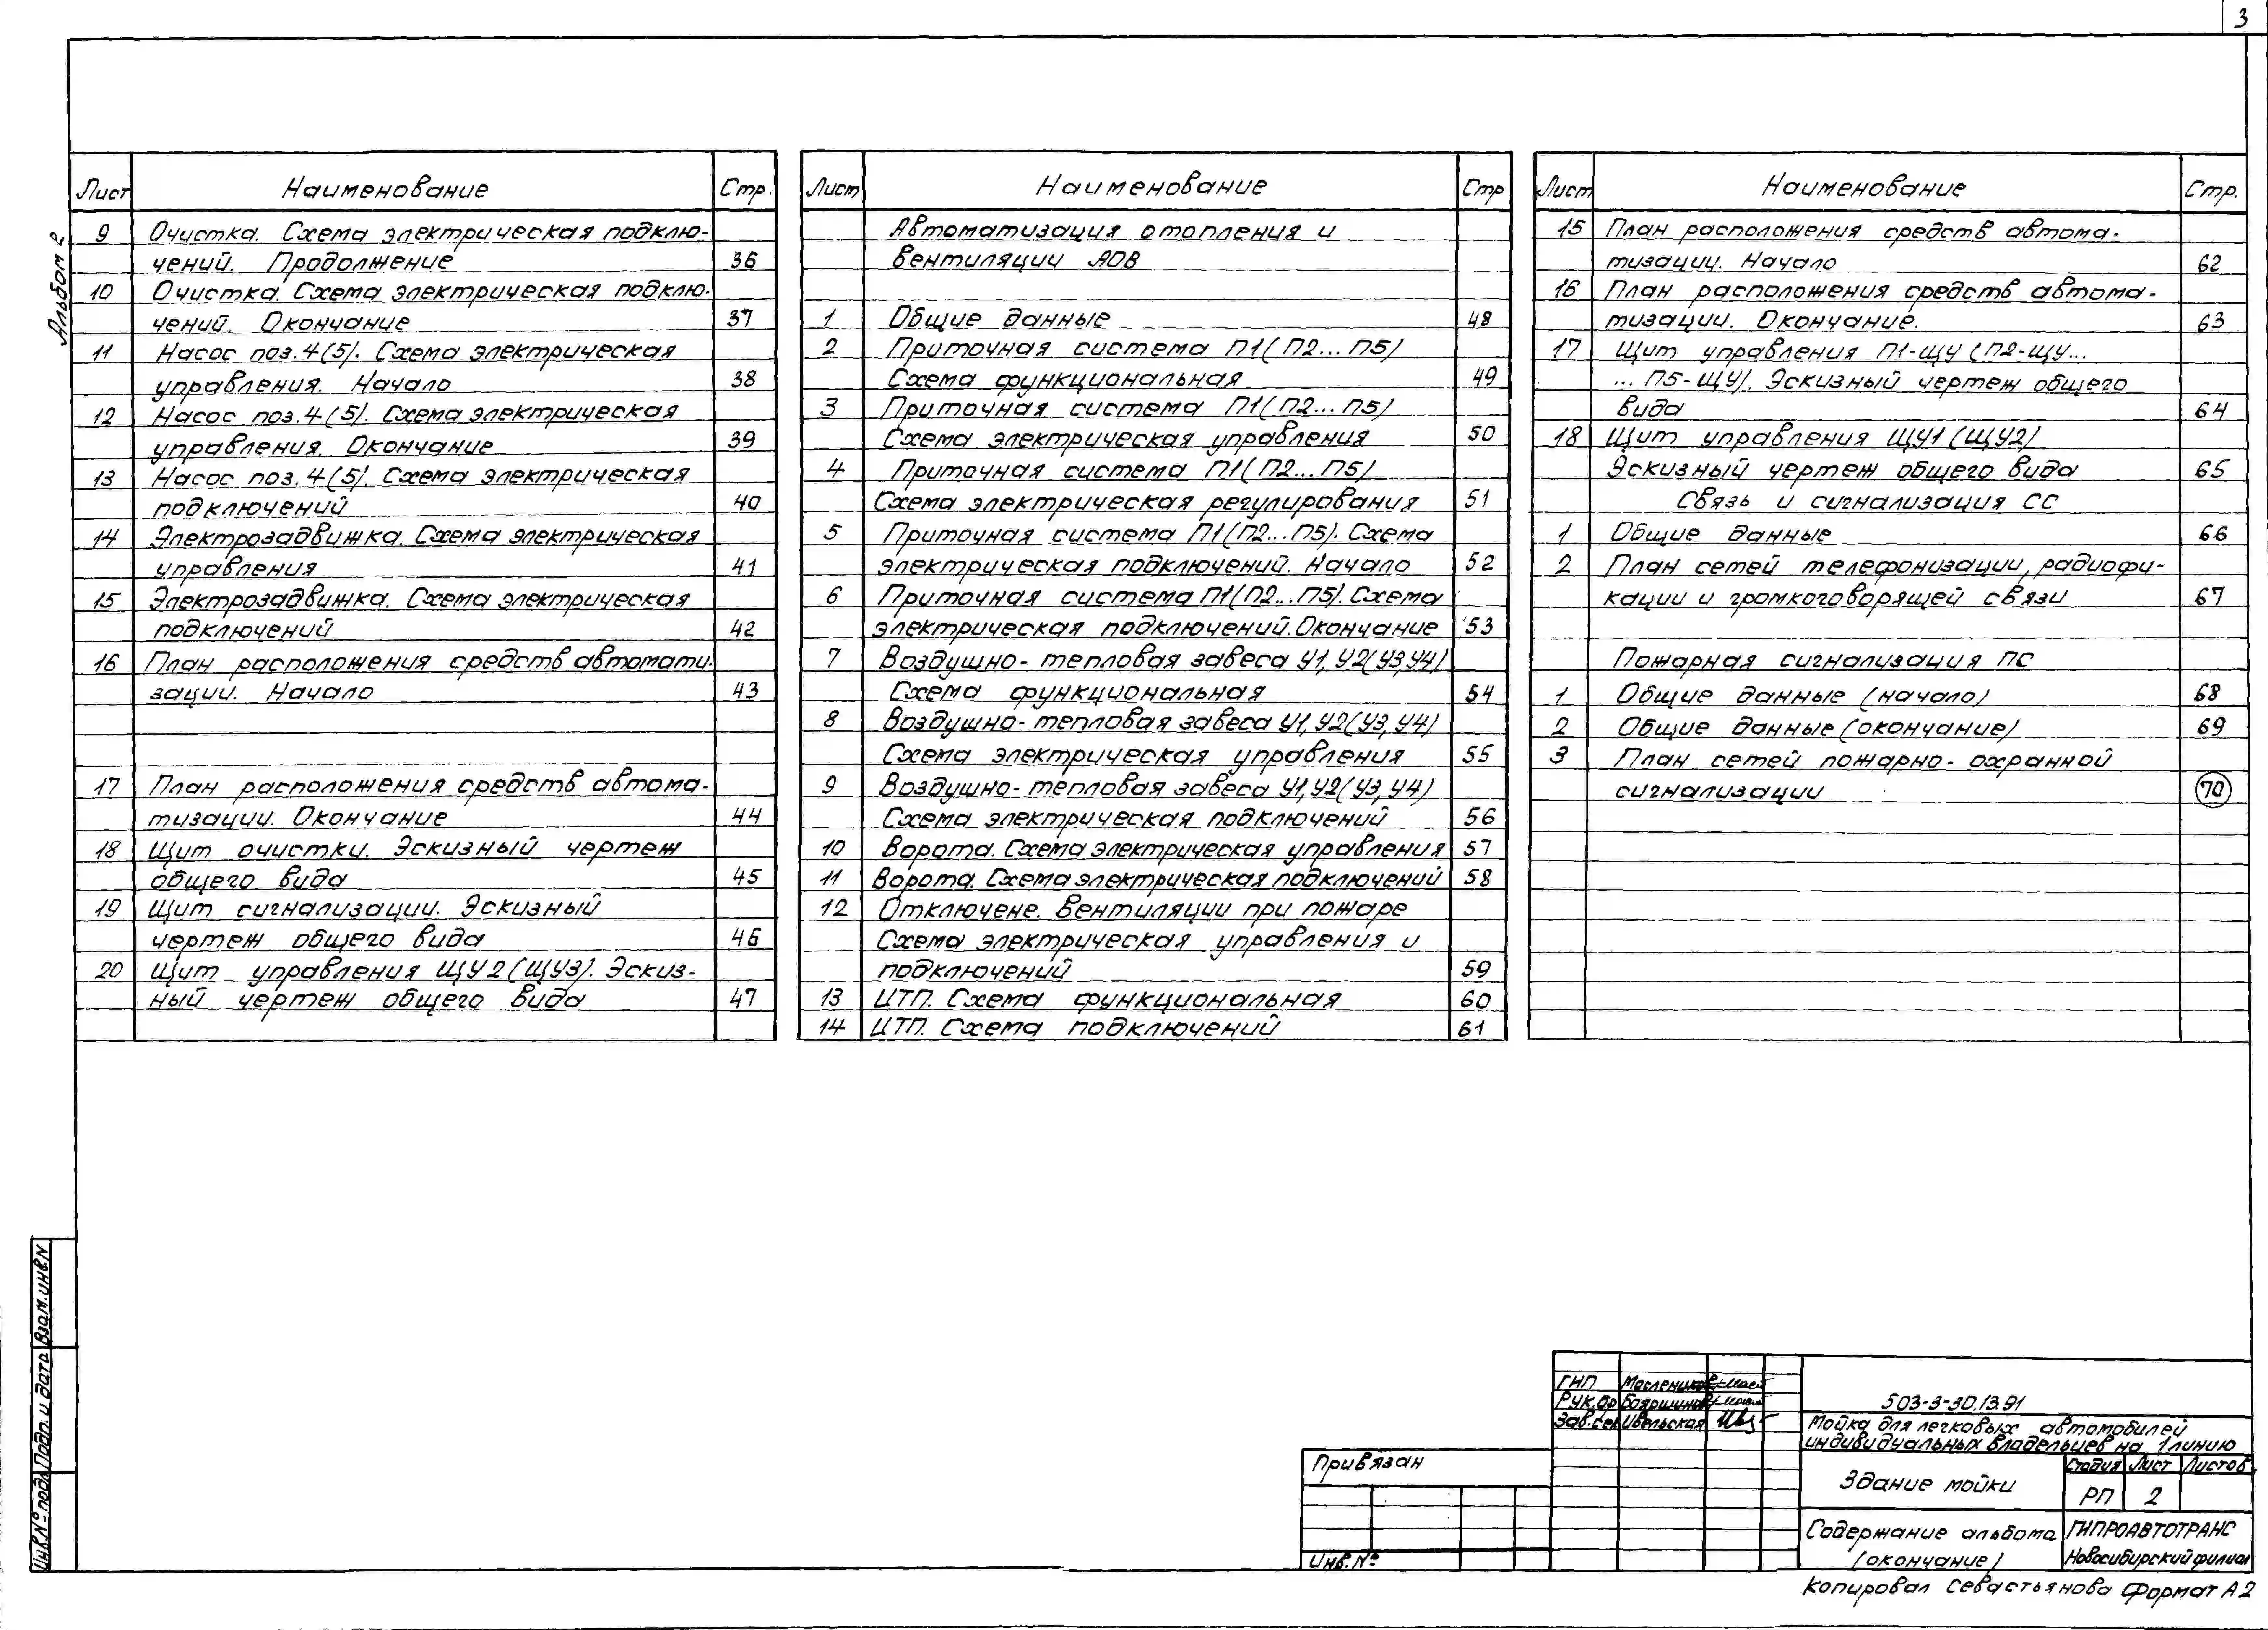 3
Альбом 2
Лист Наименование Стр.
9 Очистка. Схема электрическая подклю-
чений. Продолжение 36
10 Очистка. Схема электрическая подклю-
чений. Окончание 37
11 Насос поз. 4(5). Схема электрическая
управления. Начало 38
12 Насос поз. 4(5). Схема электрическая
управления. Окончание 39
13 Насос поз. 4(5). Схема электрическая
подключений 40
14 Электрозадвижка. Схема электрическая
управления 41
15 Электрозадвижка. Схема электрическая
подключений 42
16 План расположения средств автомати-
зации. Начало 43
17 План расположения средств автома-
тизации. Окончание 44
18 Щит очистки. Эскизный чертеж
общего вида 45
19 Щит сигнализации. Эскизный
чертеж общего вида 46
20 Щит управления ЩУ2(ЩУ3). Эскиз-
ный чертеж общего вида 47
Лист Наименование Стр
Автоматизация отопления и
вентиляции АОВ
1 Общие данные 48
2 Приточная система П1(П2...П5)
Схема функциональная 49
3 Приточная система П1(П2...П5)
Схема электрическая управления 50
4 Приточная система П1(П2...П5)
Схема электрическая регулирования 51
5 Приточная система П1(П2...П5). Схема
электрическая подключений. Начало 52
6 Приточная система П1(П2...П5). Схема
электрическая подключений. Окончание 53
7 Воздушно-тепловая завеса У1, У2(У3,У4)
Схема функциональная 54
8 Воздушно-тепловая завеса У1,У2(У3,У4)
Схема электрическая управления 55
9 Воздушно-тепловая завеса У1,У2(У3,У4)
Схема электрическая подключений 56
10 Ворота. Схема электрическая управления 57
11 Ворота. Схема электрическая подключений 58
12 Отключене. вентиляции при пожаре
Схема электрическая управления и
подключений 59
13 ИТП. Схема функциональная 60
14 ИТП. Схема подключений 61
Лист Наименование Стр.
15 План расположения средств автома-
тизации. Начало 62
16 План расположения средств автома-
тизации. Окончание. 63
17 Щит управления П1-ЩУ (П2-ЩУ...
... П5-ЩУ). Эскизный чертеж общего
вида 64
18 Щит управления ЩУ1(ЩУ2)
Эскизный чертеж общего вида 65
Связь и сигнализация СС
1 Общие данные 66
2 План сетей телефонизации, радиофи-
кации и громкоговорящей связи 67
Пожарная сигнализация ПС
1 Общие данные (начало) 68
2 Общие данные (окончание) 69
3 План сетей пожарно-охранной
сигнализации 70
Взам.инв.N
Подп. и дата
Инв.№ подл
Привязан
Инв.№
ГИП
Рук.бр
Зав.сек Ивельская
503-3-30.13.91
Мойка для легковых автомобилей
индивидуальных владельцев на 1 линию
Здание мойки
Стадия Лист Листов
РП 2
Содержание альбома
(окончание)
ГИПРОАВТОТРАНС
Новосибирский филиал
Копировал Севастьянова Формат А2